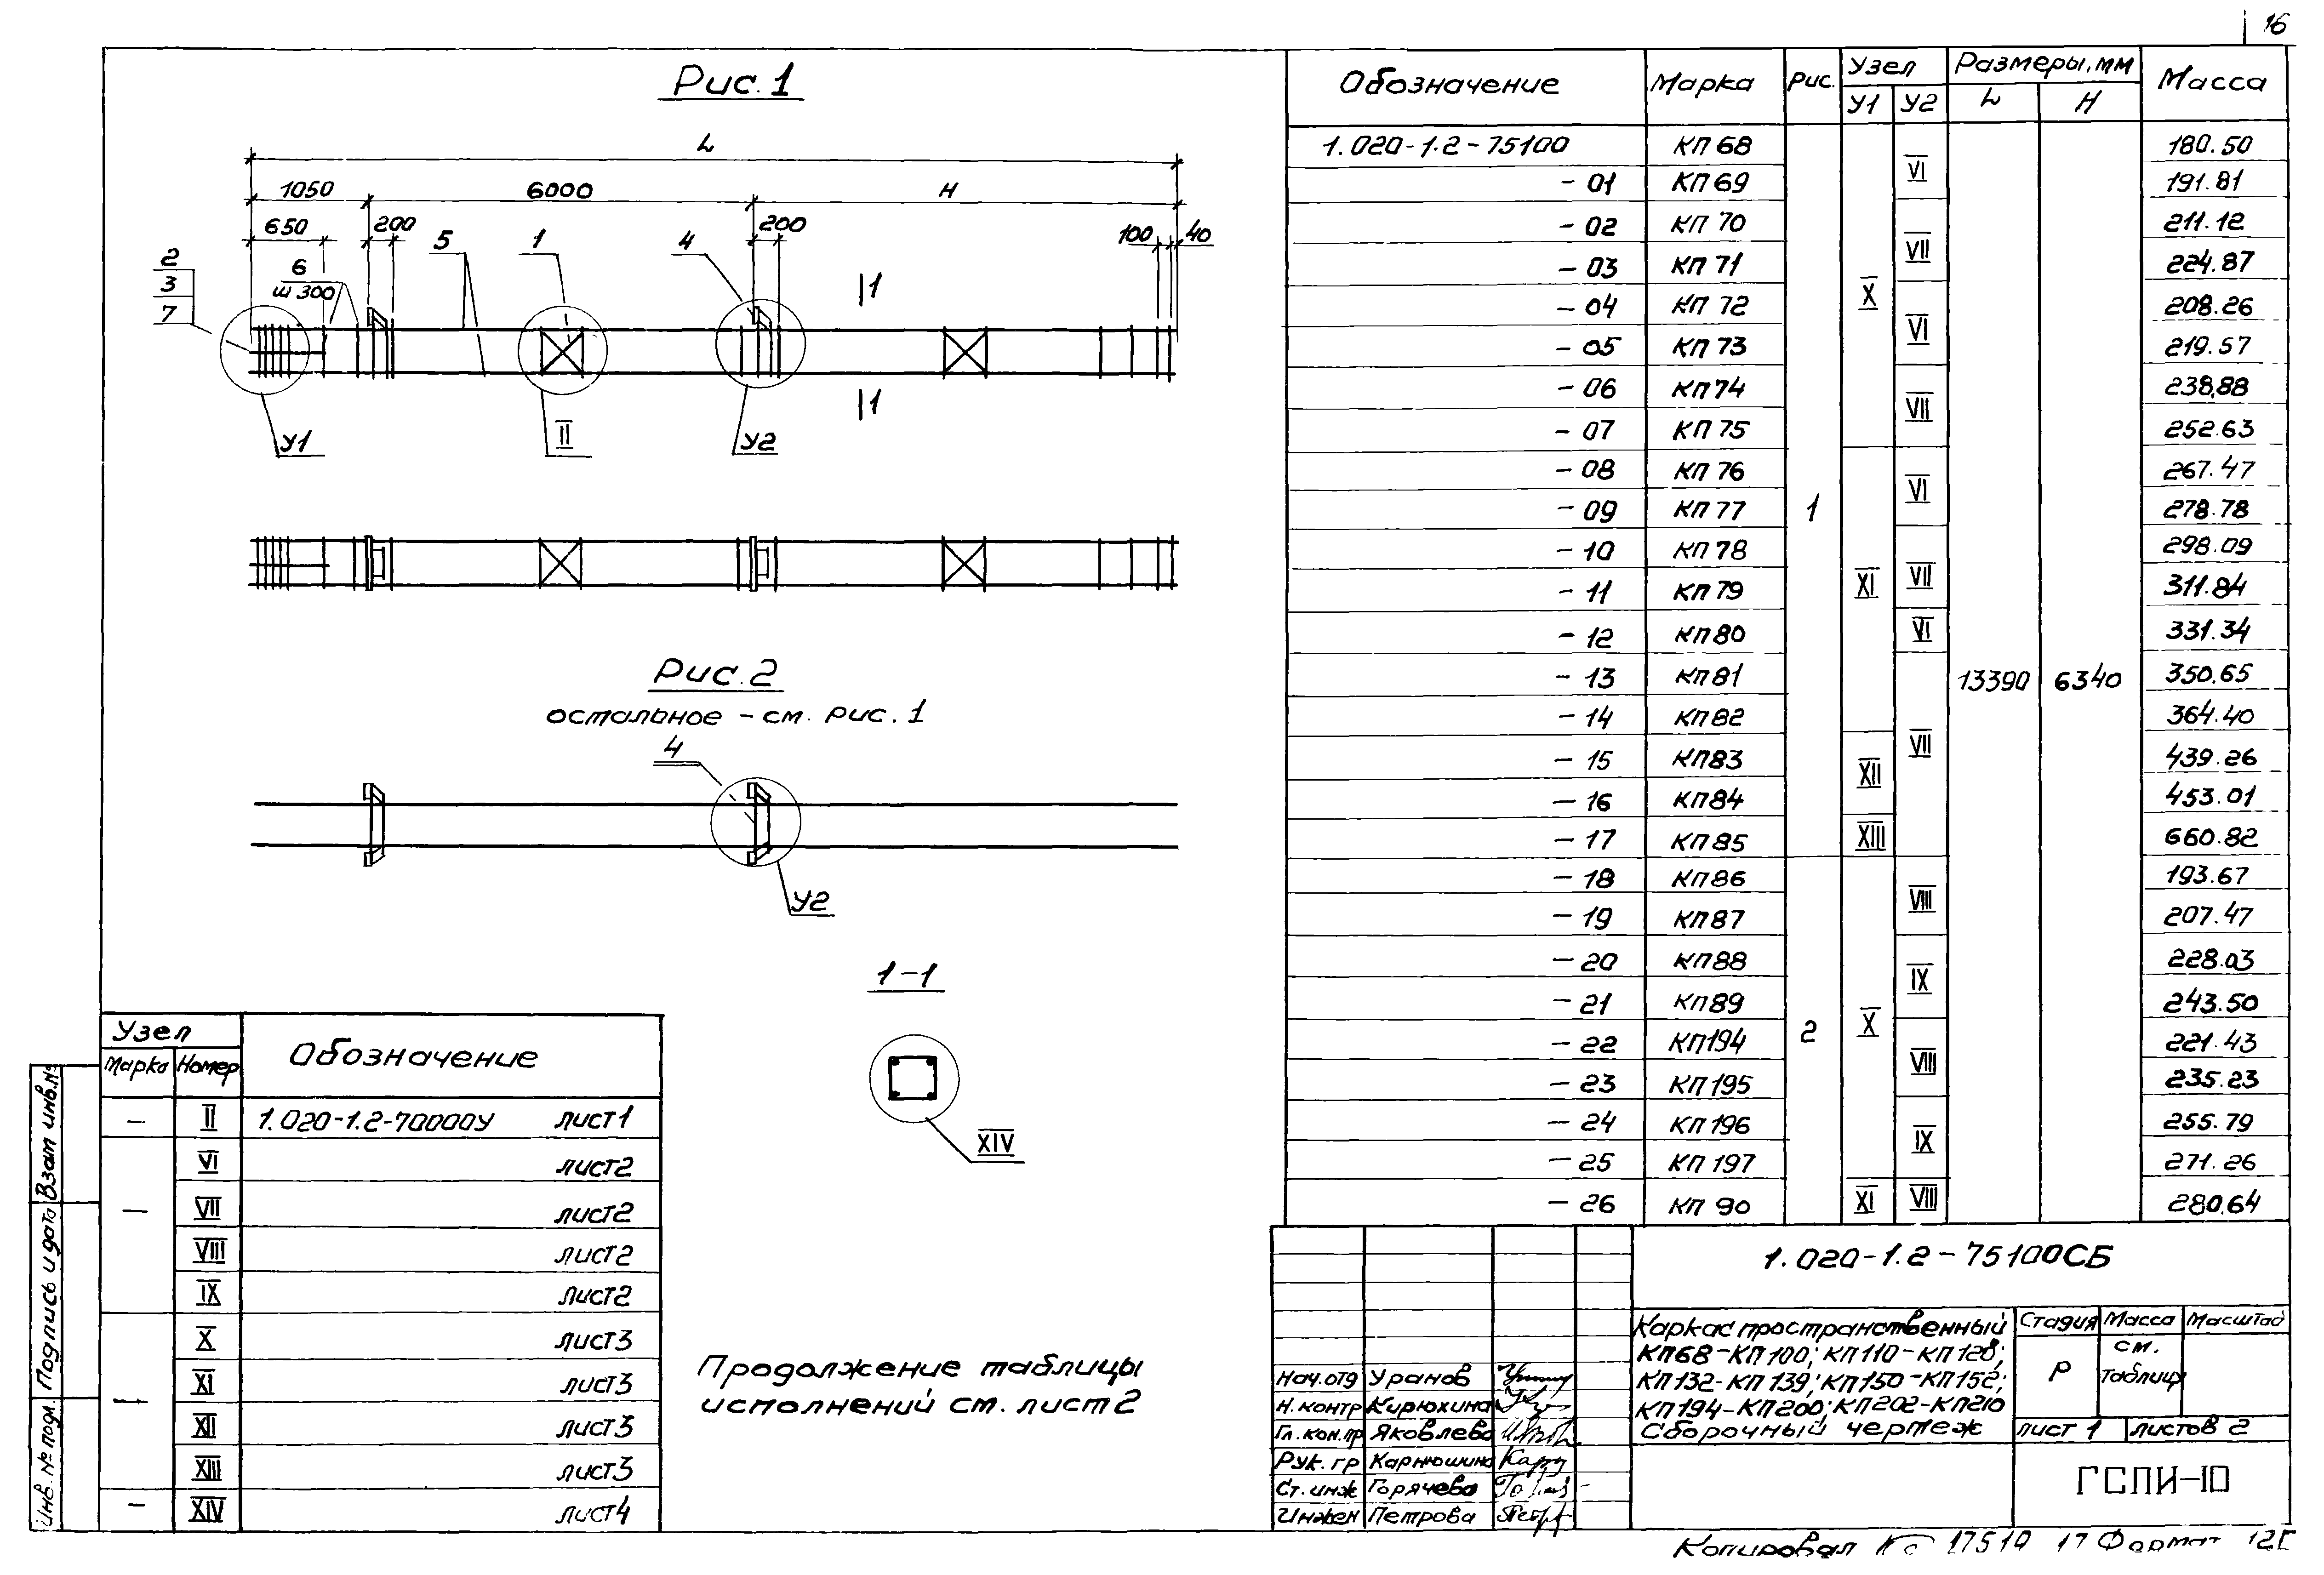 16
Рис. 1
L
1050
6000
H
650
200
200
100
40
2
3
7
6
ш 300
5
1
4
1
1
У1
II
У2
Рис. 2
остальное - см. рис. 1
4
У2
1-1
XIV
Продолжение таблицы
исполнений см. лист 2
Узел
Обозначение
Марка Номер
— II 1.020-1.2-70000У лист1
VI лист2
— VII лист2
VIII лист2
IX лист2
X лист3
XI лист3
— XII лист3
XIII лист3
— XIV лист4
Взам инв.№
Подпись и дата
Инв. № подл.
Обозначение Марка Рис. Узел Размеры, мм Масса
У1 У2 L H
1.020-1.2-75100 КП 68 180.50
VI
- 01 КП 69 191.81
- 02 КП 70 211.12
VII
- 03 КП 71 224.87
X
- 04 КП 72 208.26
VI
- 05 КП 73 219.57
- 06 КП 74 238.88
VII
- 07 КП 75 252.63
- 08 КП 76 267.47
VI
- 09 КП 77 1 278.78
- 10 КП 78 298.09
XI VII
- 11 КП 79 311.84
- 12 КП 80 VI 331.34
- 13 КП 81 13390 6340 350.65
- 14 КП 82 364.40
VII
- 15 КП 83 439.26
XII
- 16 КП 84 453.01
- 17 КП 85 XIII 660.82
- 18 КП 86 193.67
VIII
- 19 КП 87 207.47
- 20 КП 88 228.03
IX
- 21 КП 89 243.50
2 X
- 22 КП 194 221.43
VIII
- 23 КП 195 235.23
- 24 КП 196 255.79
IX
- 25 КП 197 271.26
- 26 КП 90 XI VIII 280.64
1.020-1.2-75100СБ
Каркас пространственный
КП68-КП100; КП110-КП128;
КП132-КП139; КП150-КП152;
КП194-КП200; КП202-КП210
Сборочный чертеж
Стадия Масса Масштаб
Р
см.
таблицу
лист 1 листов 2
ГСПИ-10
Нач.отд Уранов
Н. контр Кирюхина
Гл. кон.пр Яковлева
Рук. гр Карнюшина
Ст. инж Горячева
Инжен Петрова
Копировал 17510 17 Формат 12Г